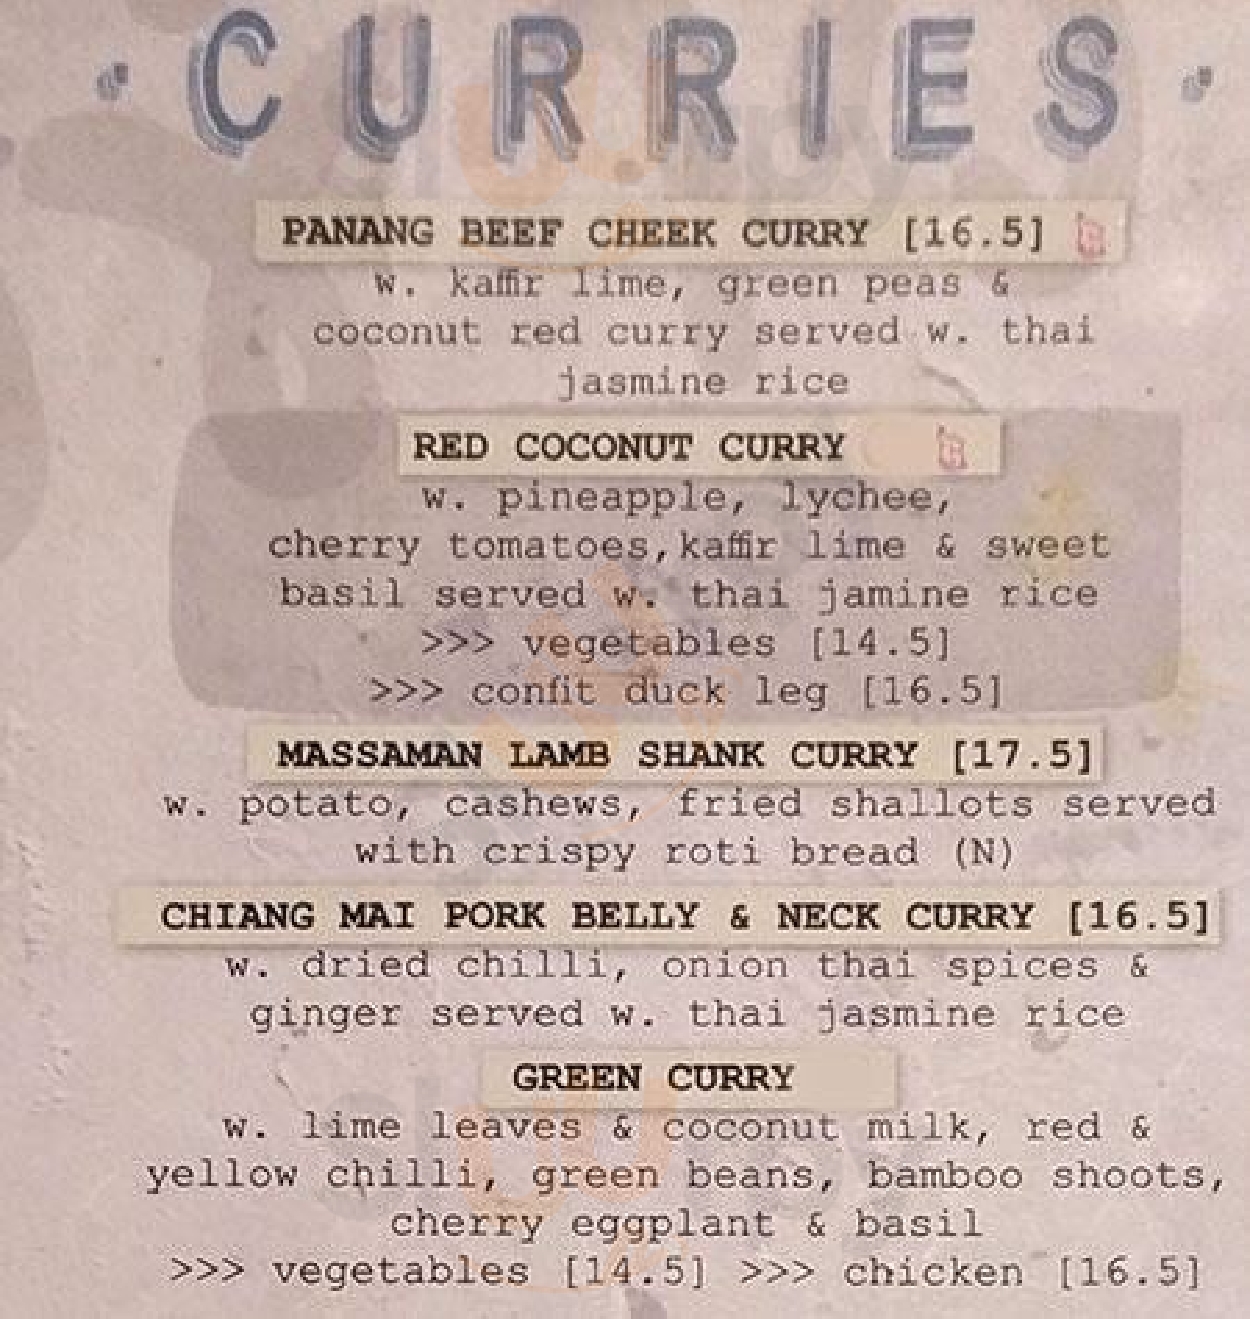 · CURRIES ·
PANANG BEEF CHEEK CURRY [16.5]
w. kaffir lime, green peas &
coconut red curry served w. thai
jasmine rice
RED COCONUT CURRY
w. pineapple, lychee,
cherry tomatoes, kaffir lime & sweet
basil served w. thai jamine rice
>>> vegetables [14.5]
>>> confit duck leg [16.5]
MASSAMAN LAMB SHANK CURRY [17.5]
w. potato, cashews, fried shallots served
with crispy roti bread (N)
CHIANG MAI PORK BELLY & NECK CURRY [16.5]
w. dried chilli, onion thai spices &
ginger served w. thai jasmine rice
GREEN CURRY
w. lime leaves & coconut milk, red &
yellow chilli, green beans, bamboo shoots,
cherry eggplant & basil
>>> vegetables [14.5] >>> chicken [16.5]